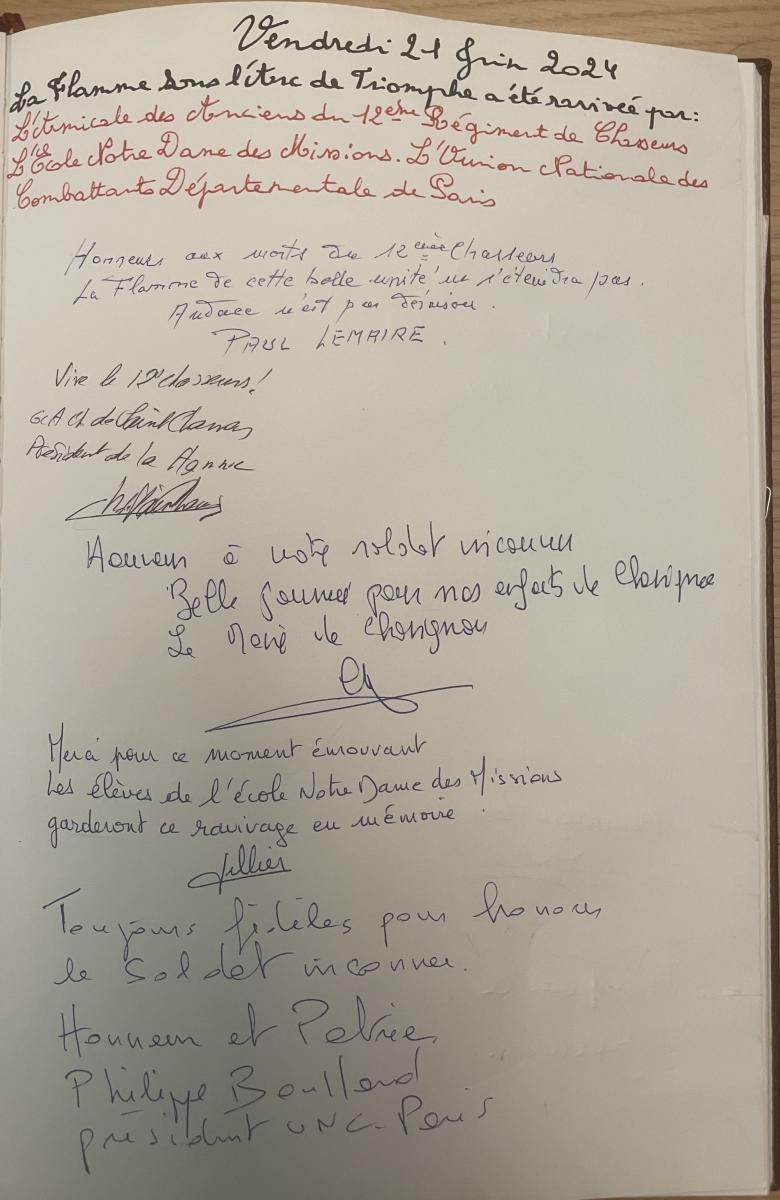 Vendredi 21 Juin 2024
La Flamme sous l'Arc de Triomphe a été ravivée par:
L'Amicale des Anciens du 12ème Régiment de Chasseurs
L'Ecole Notre Dame des Missions. L'Union Nationale des
Combattants Départementale de Paris
Honneurs aux morts du 12ème Chasseurs
La Flamme de cette belle unité ne s'éteindra pas.
Audace n'est pas déraison.
PAUL LEMAIRE.
Vive le 12e chasseurs!
GCA Ch. de Saint Chamas
Président de la Flamme
Honneur à notre soldat inconnu
Belle journée pour nos enfants de
Le Maire de
Merci pour ce moment émouvant
Les élèves de l'école Notre Dame des Missions
garderont ce ravivage en mémoire.
Toujours fidèles pour honorer
le Soldat inconnu.
Honneur et Patrie
Philippe Boulland
président UNC-Paris